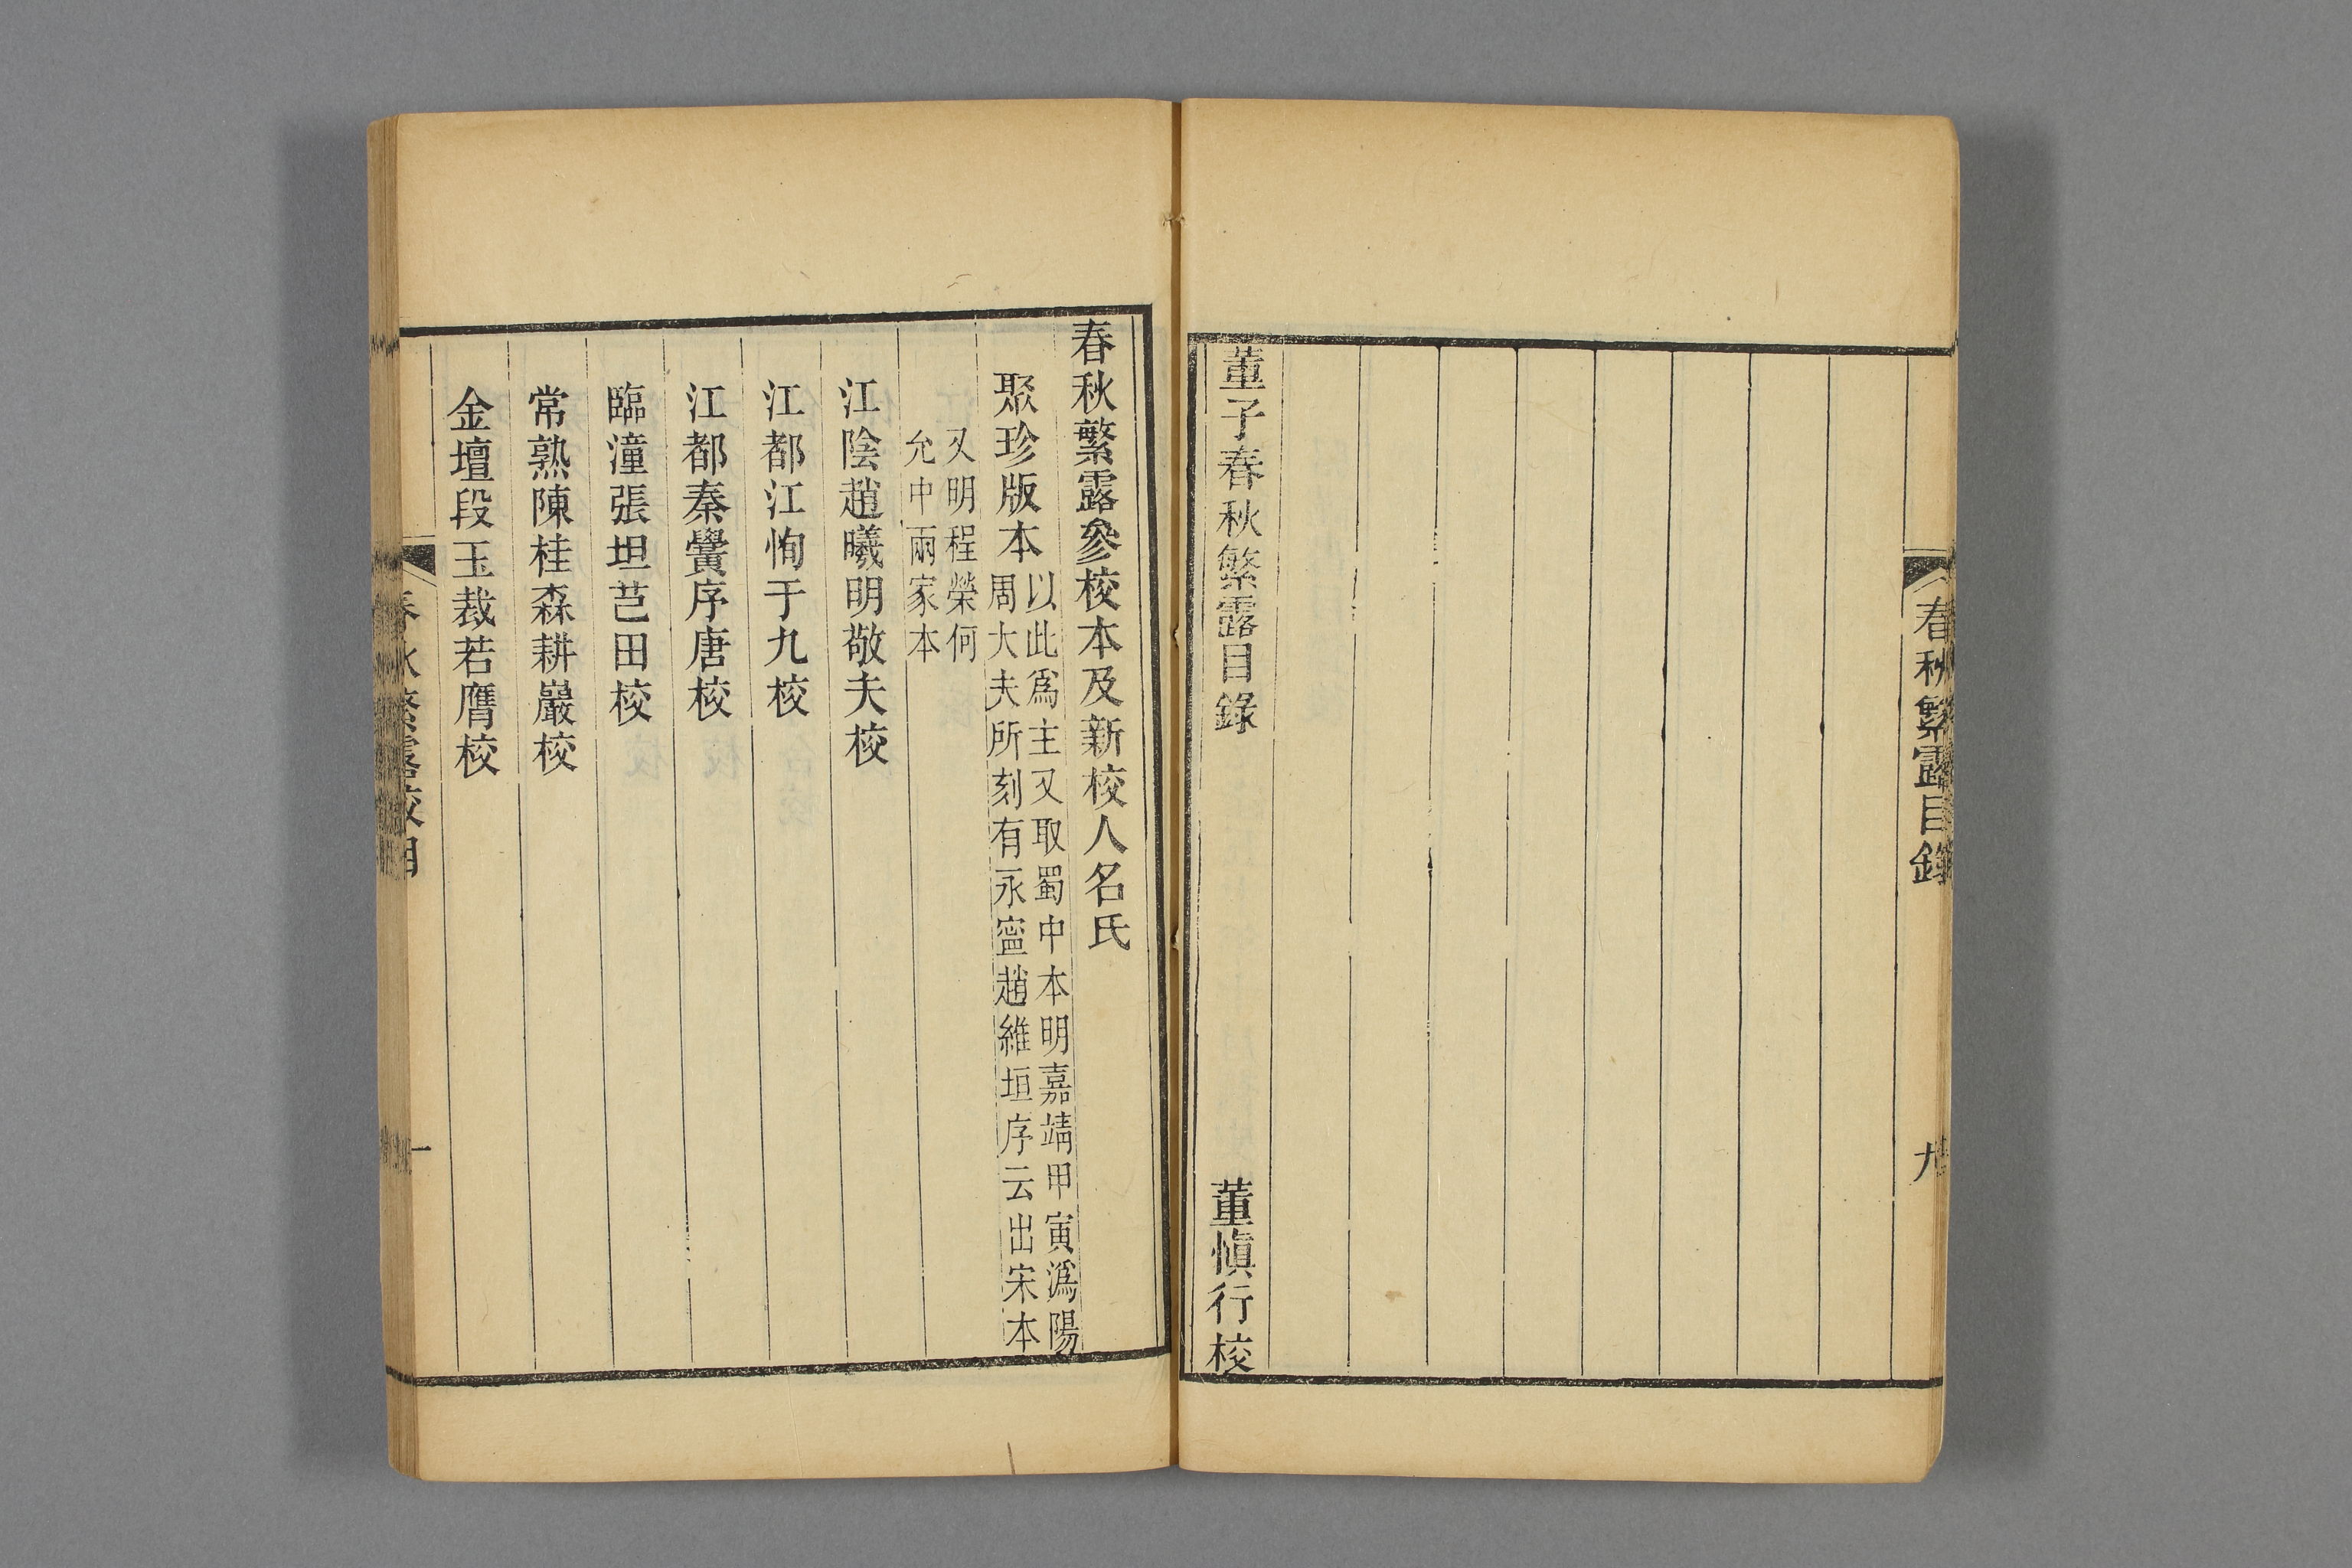 春秋繁露目錄
九
董子春秋繁露目錄
董愼行校
春秋繁露參校本及新校人名氏
聚珍版本
以此爲主又取蜀中本明嘉靖甲寅潙陽
周大夫所刻有永寧趙維垣序云出宋本
又明程榮何
允中兩家本
江陰趙曦明敬夫校
江都江恂于九校
江都秦黌序唐校
臨潼張坦芑田校
常熟陳桂森耕巖校
金壇段玉裁若膺校
春秋繁露校
一